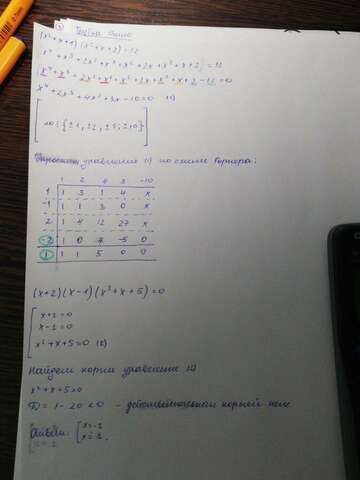 (x²+x+1)(x²+x+2)=12
x⁴+x³+2x²+x³+x²+2x+x²+x+2=12
x⁴+x³+2x²+x³+x²+2x+x²+x+2-12=0
x⁴+2x³+4x²+3x-10=0 (1)
10: {±1, ±2, ±5; ±10}
уравнение (1) по схеме Горнера:
1 2 4 3 -10
1 1 3 1 4 x
-1 1 1 3 0 x
2 1 4 12 27 x
-2 1 0 4 -5 0
1 1 1 5 0 0
(x+2)(x-1)(x²+x+5)=0
x+2=0
x-1=0
x²+x+5=0 (2)
Найдем корни уравнения (2)
x²+x+5=0
D=1-20<0 - действительных корней нет
Ответ: x=-2
x=1.